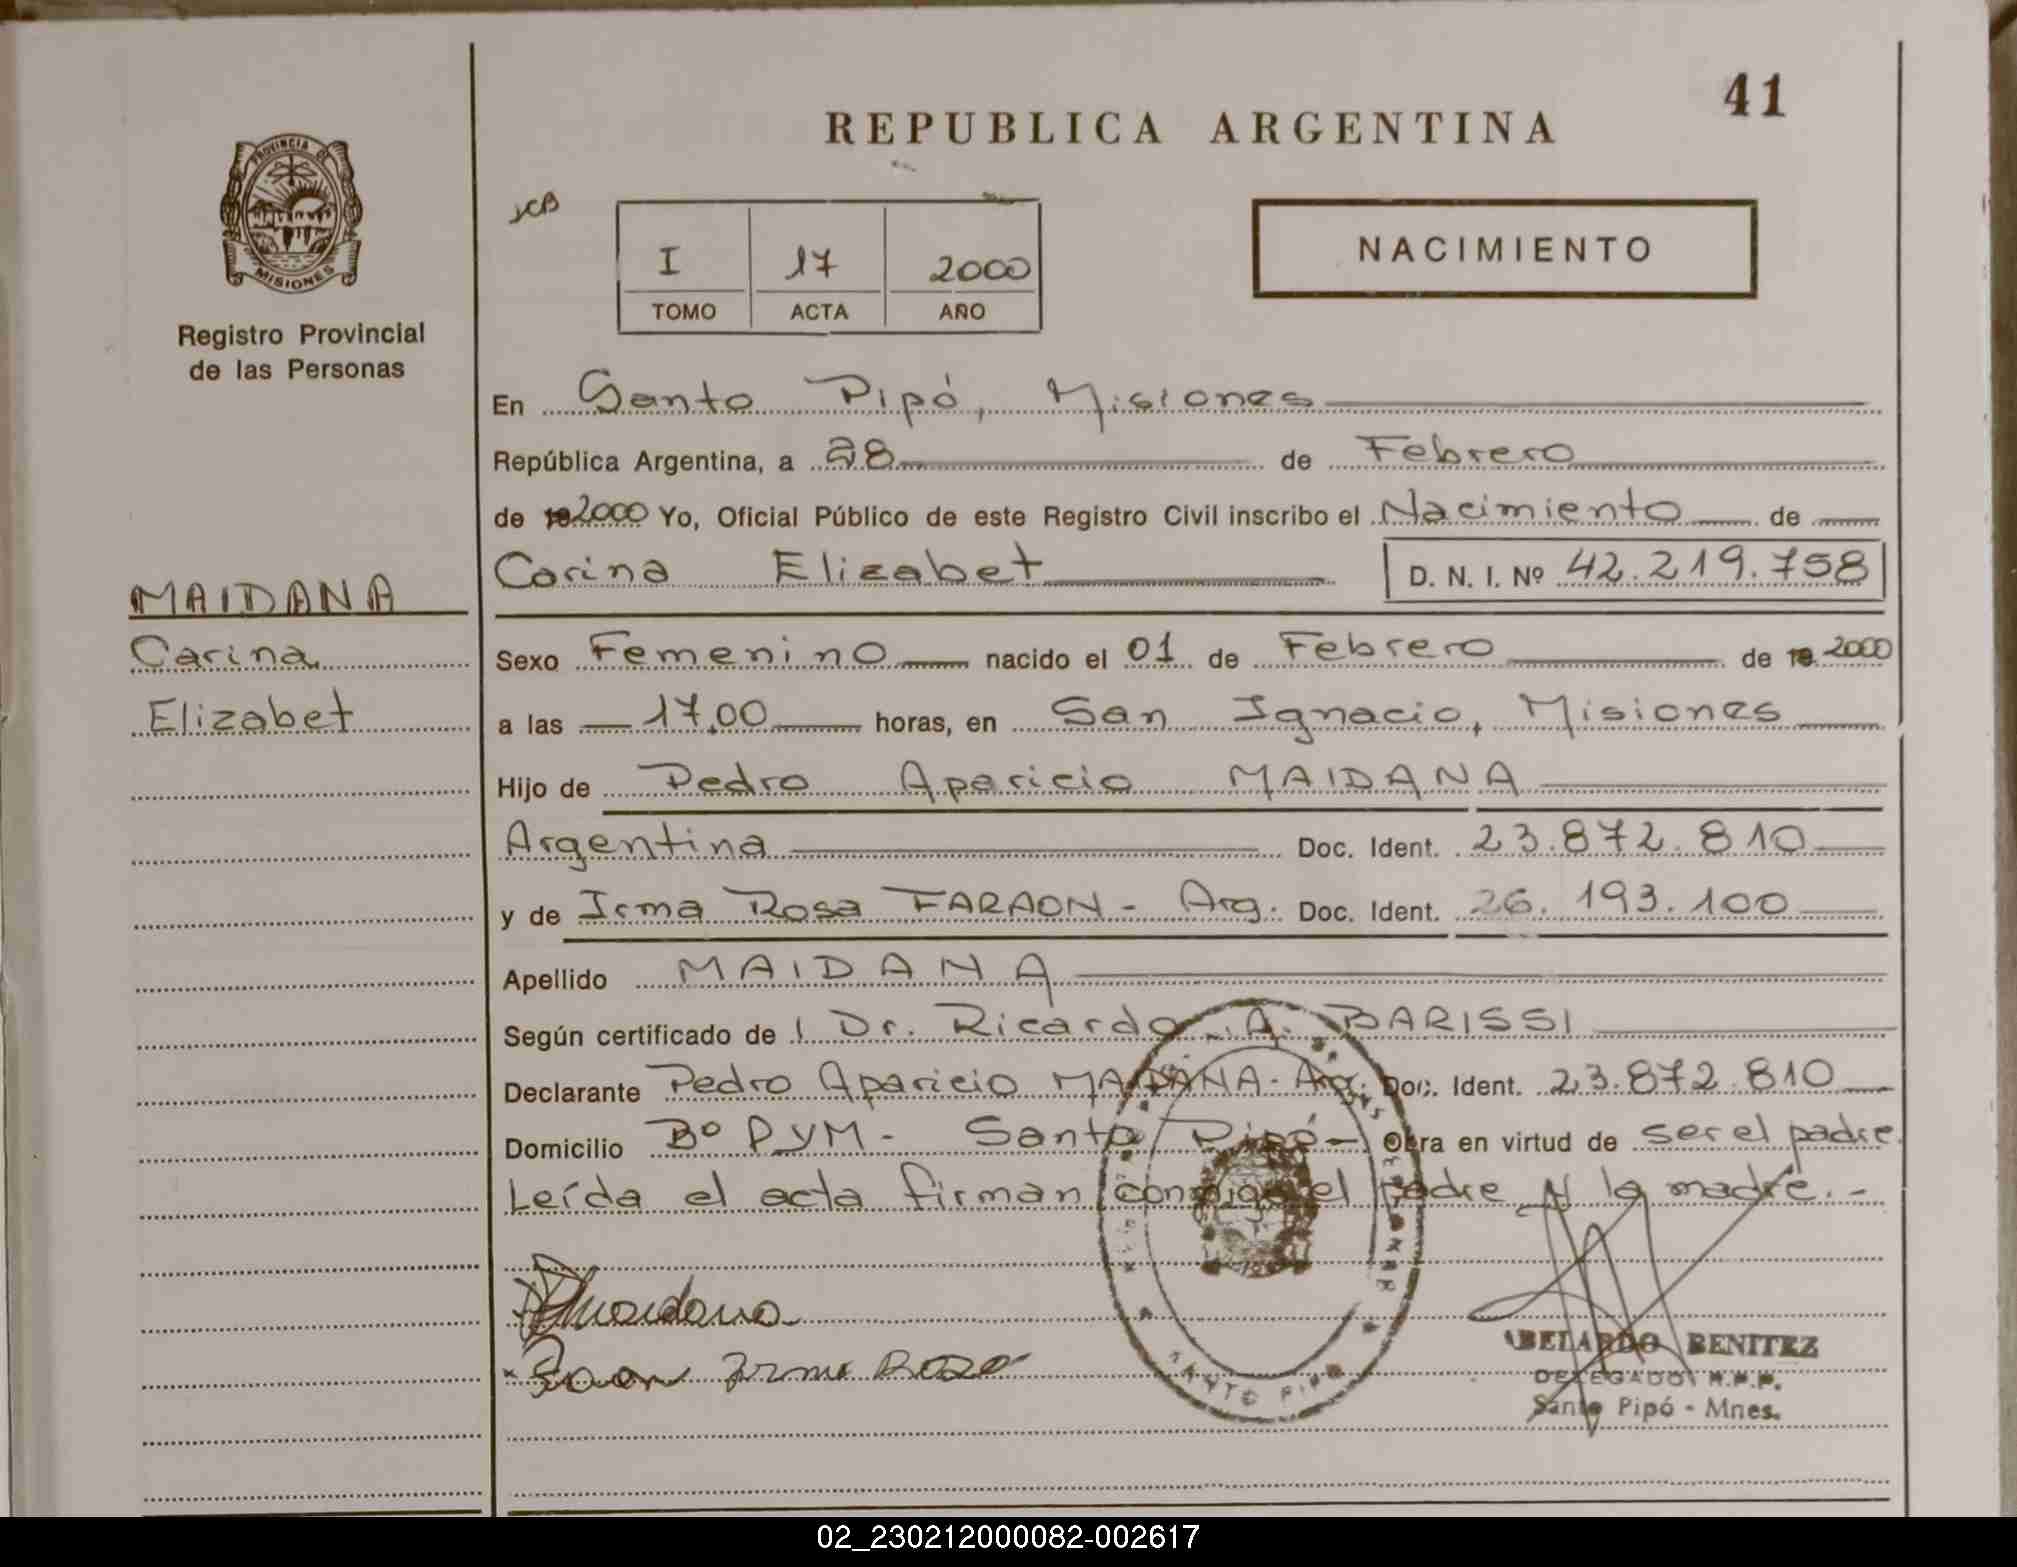 41
REPUBLICA ARGENTINA
PROVINCIA DE
MISIONES
Registro Provincial
de las Personas
I 17 2000
TOMO ACTA AÑO
NACIMIENTO
En Santo Pipó, Misiones
República Argentina, a 28 de Febrero
de 19 2000 Yo, Oficial Público de este Registro Civil inscribo el Nacimiento de
Carina Elizabet D. N. I. Nº 42.219.758
MAIDANA
Carina
Elizabet
Sexo Femenino nacido el 01 de Febrero de 19 2000
a las 17,00 horas, en San Ignacio, Misiones
Hijo de Pedro Aparicio MAIDANA
Argentina Doc. Ident. 23.872.810
y de Irma Rosa FARAON - Arg. Doc. Ident. 26.193.100
Apellido MAIDANA
Según certificado de Dr. Ricardo A. BARISSI
Declarante Pedro Aparicio MAIDANA - Arg. Doc. Ident. 23.872.810
Domicilio Bº PyM - Santo Pipó - Obra en virtud de ser el padre
Leída el acta firman conmigo el padre y la madre. -
Maidana
Irma Rosa
SANTO PIPO
ABELARDO BENITEZ
DELEGADO R.P.P.
Santo Pipó - Mnes.
02_230212000082-002617